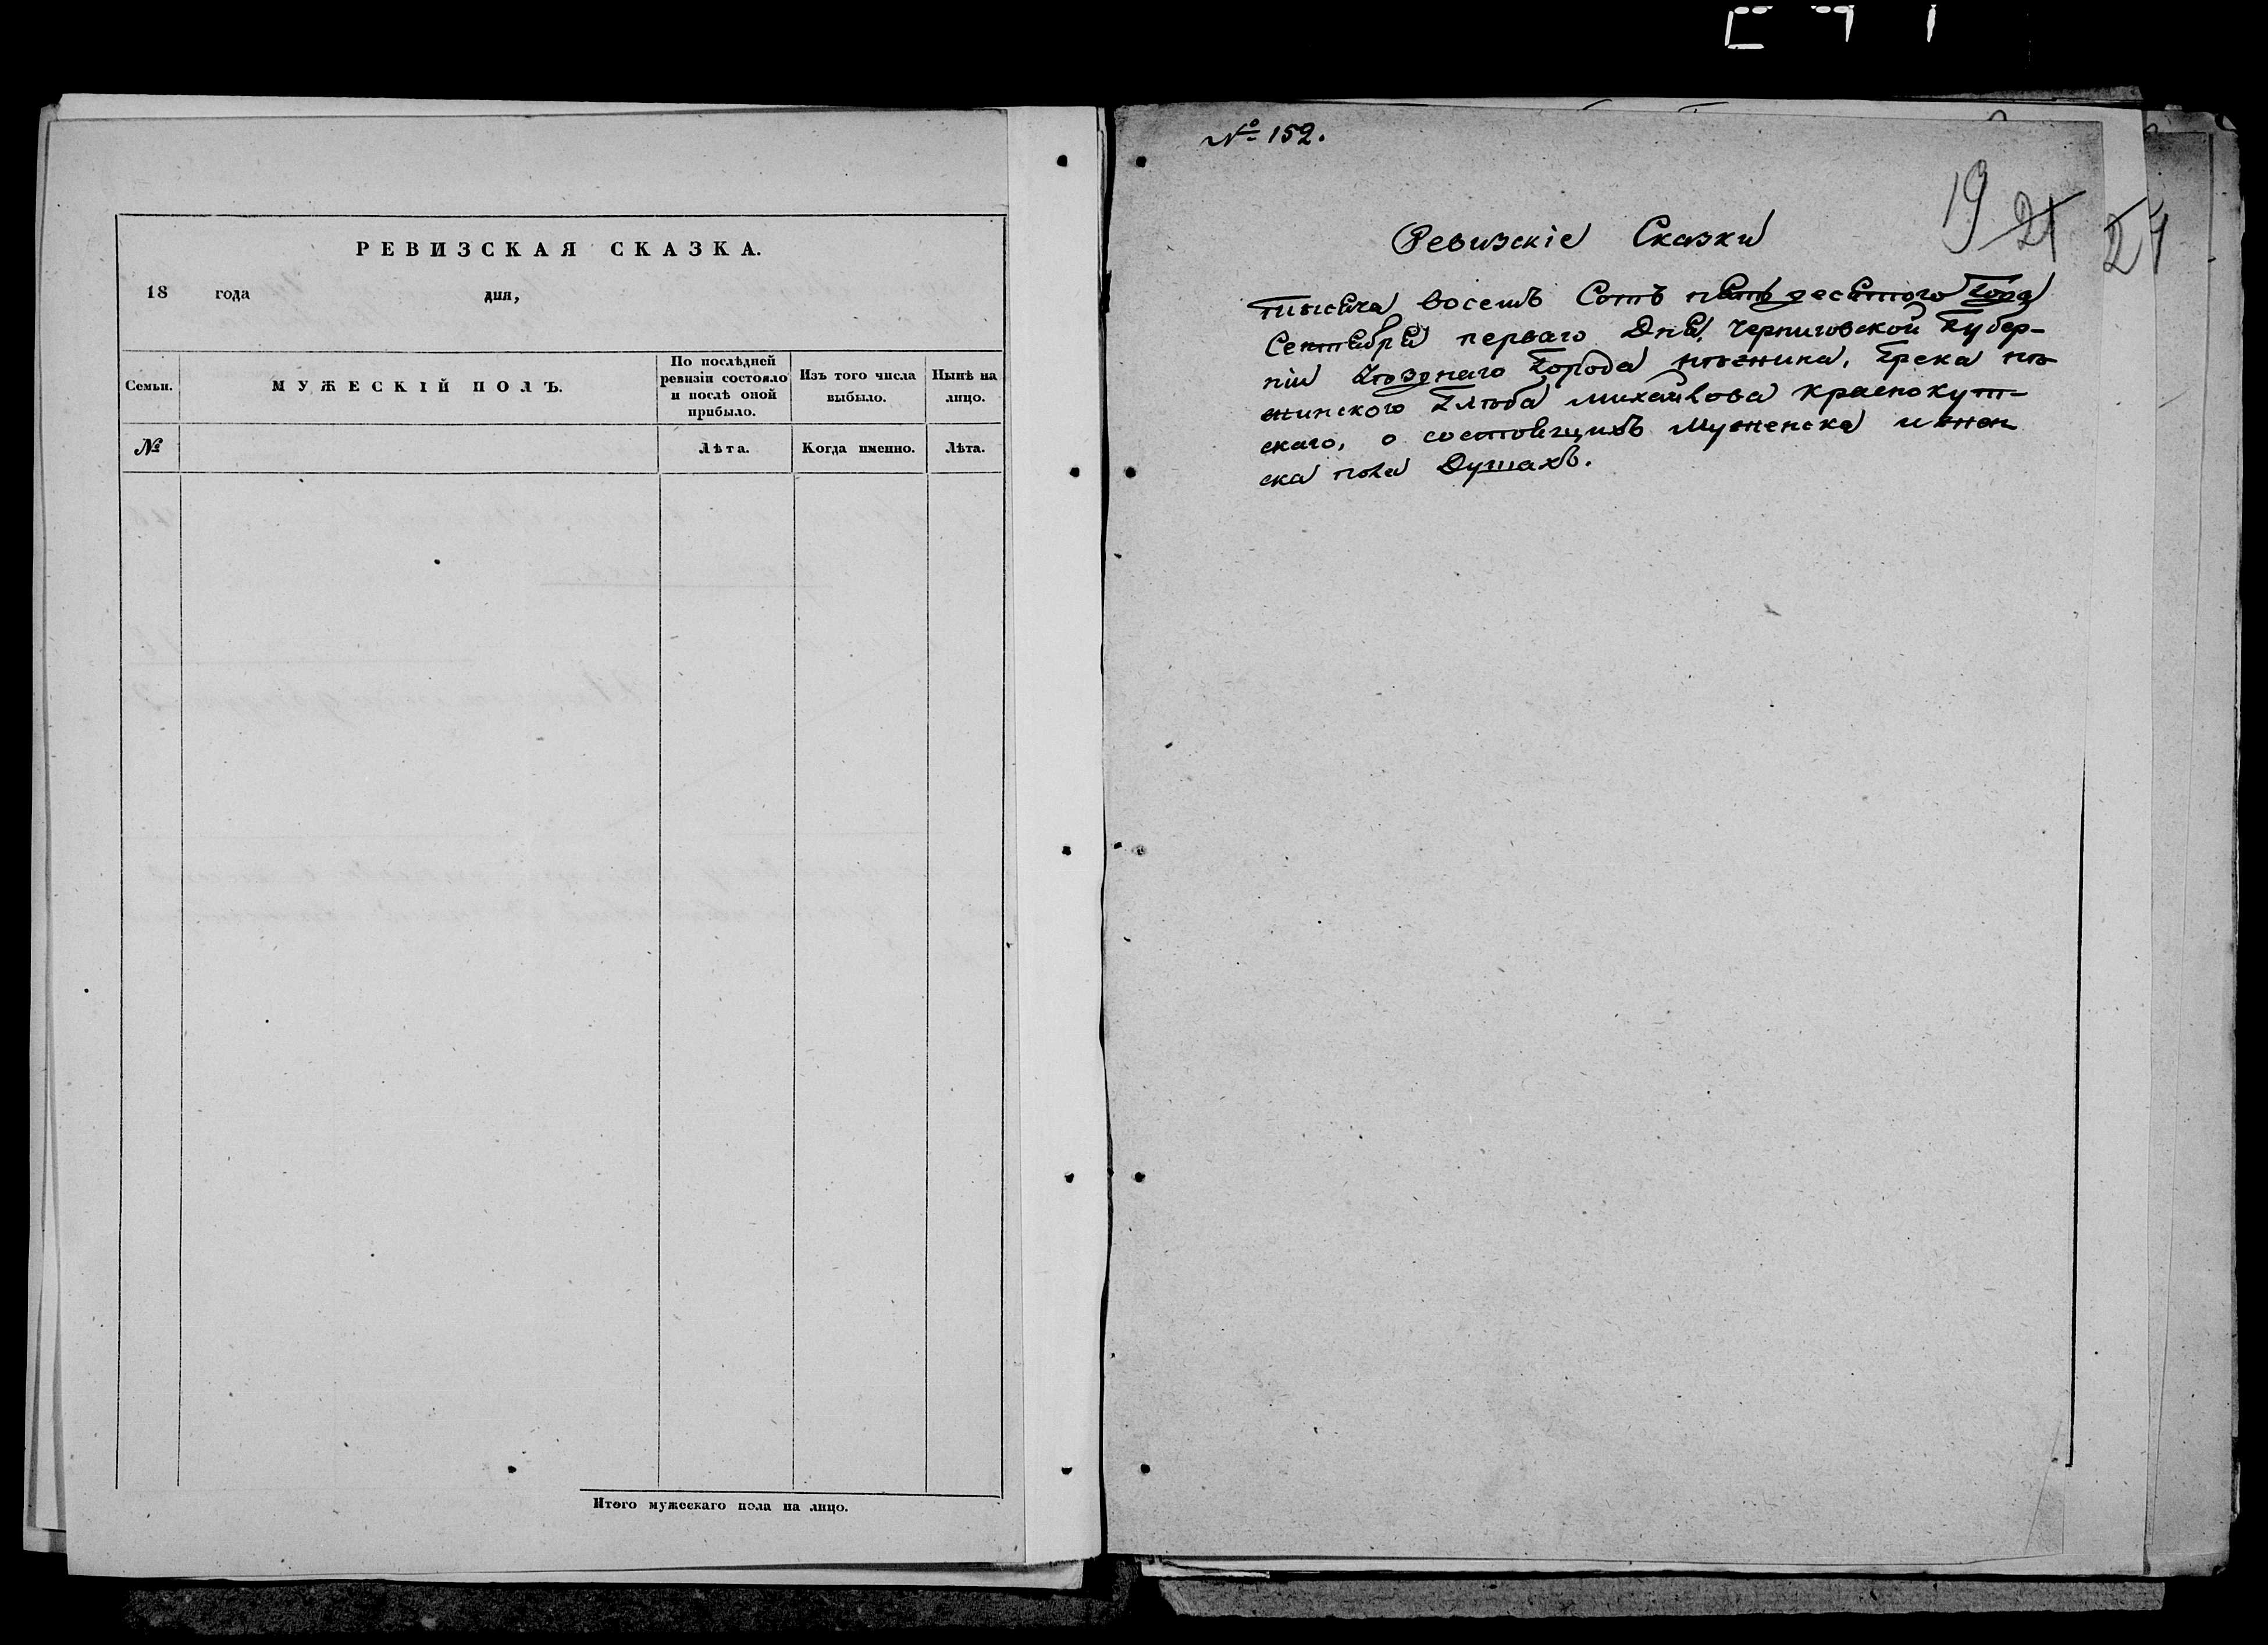 РЕВИЗСКАЯ СКАЗКА.
18 года дня,
Семьи.
МУЖЕСКІЙ ПОЛЪ.
По послѣдней
ревизіи состояло
и послѣ оной
прибыло.
Изъ того числа
выбыло.
Нынѣ на
лицо.
№
Лѣта.
Когда именно.
Лѣта.
Итого мужескаго пола на лицо.
№ 152.
19 21 24
Ревизскіе Сказки
тысяча восемь Сотъ пятьдесятого Года
Сентября перваго Дня, Черниговской Губер-
ніи Уѣзднаго Города Нѣжина, Грека нѣ
жинского Глѣба Михайлова Краснокут-
скаго, о состоящихъ Мужеска и жен
ска пола Душахъ.